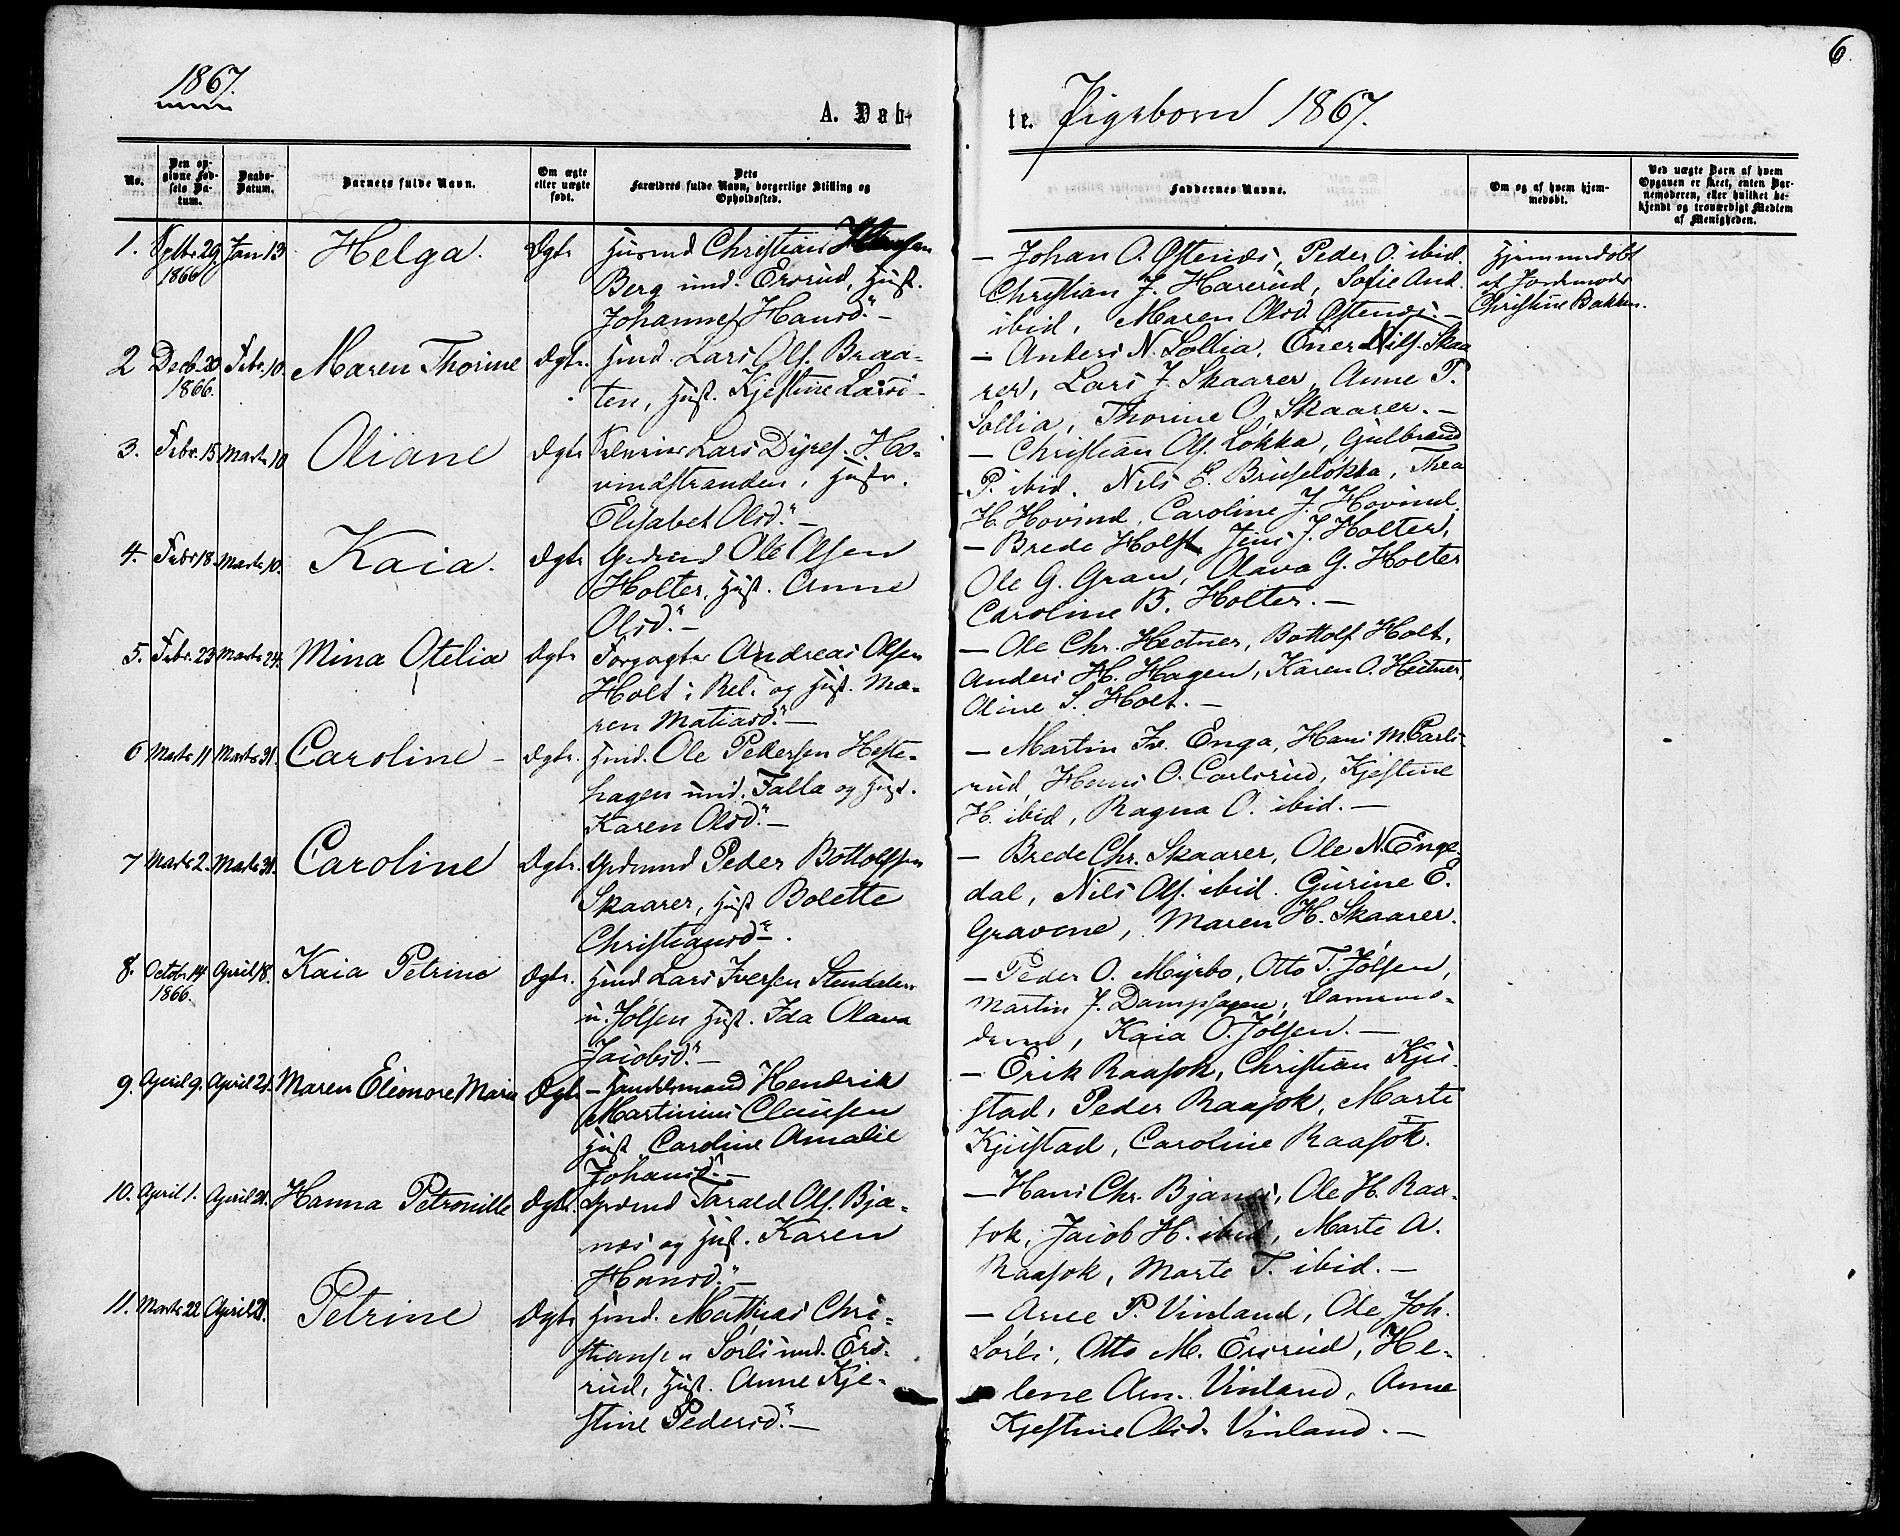 6.
1867.
A. Dab-
te. Pigebørn 1867.
No.
Den op-
givne Fød-
sels Da-
tum.
Daabs-
Datum.
Barnets fulde Navn.
Om ægte
eller uægte
født.
Dets
Forældres fulde Navn, borgerlige Stilling og
Opholdssted.
Faddernes Navne.
Om og af hvem hjem-
medøbt.
Ved uægte Børn af hvem
Opgaven er skeet, enten Bar-
nemoderen, eller hvilket be-
kjendt og troværdigt Medlem
af Menigheden.
1. Sptbr. 29 Jan 13 Helga. Ægte Husmd Christian Hansen
1866
Berg und. Ersrud, Hust.
Johanne Hansd." —
— Johan O. Østenes, Peder O. ibid.
Christian J. Harerud, Sofie And.
ibid, Maren Olsd Østenes. —
Hjemmedøbt
af Jordemoder
Christine Bakken.
2 Decb. 20 Febr. 10. Maren Thorine Ægte. Hmd. Lars Ols. Braa-
1866.
ten, Hust. Kjestine Larsd
— Anders N. Sollia, Ener Nils. Skaa
rer, Lars J. Skaarer, Anne P.
Sollia, Thorine O. Skaarer. —
3. Febr. 15 Marts 10 Oliane Ægte Lars Dyres. Ho-
vindstranden, Hustr.
Elisabet Olsd." —
— Christian Ols. Løkka, Gulbrand
P. ibid. Nils E. Bruseløkka, Thea
H. Hovind, Caroline J. Hovind.
4. Febr 18. Marts 10. Kaia. Ægte Grdmd Ole Olsen
Holter, Hust. Anne
Olsd." —
— Brede Holst, Jens J. Holter,
Ole G. Gran, Olava G. Holter
Caroline B. Holter. —
5. Febr. 23 Marts 24. Mina Otelia Ægte Forpagter Andreas Olsen
Holt i Rel. og Hust. Ma-
ren Matiasd." —
— Ole Chr. Hectner, Bottolf Holt,
Anders H. Hagen, Karen O. Hectner,
Oline S. Holt. —
6 Marts 11 Marts 31. Caroline — Ægte. Hmd. Ole Pedersen Heste-
hagen und. Falla og Hust.
Karen Olsd." —
— Martin Fr. Enga, Hans M. Carls-
rud, Hans O. Carlsrud, Kjestine
H. ibid, Ragna O. ibid. —
7 Marts 2. Marts 31. Caroline Ægte. Grdmnd Peder Bottolfsen
Skaarer, Hust Bolette
Christiansd" .
— Brede Chr. Skaarer, Ole N. Enge-
dal, Nils Ols. ibid. Gurine E.
Gravene, Maren H. Skaarer.
8. Octobr. 14 April 18. Kaia Petrine Ægte. Hmd Lars Iversen Stendalen
1866.
u. Jølsen Hust. Ida Olava
Jacobsd." —
— Peder O. Myrbo, Otto T. Jølsen,
Martin J. Dampsagen, Barnemo-
deren, Kaia O. Jølsen. —
9. April 9. April 21. Maren Eleonore Marie Ægte — Handelsmand Hendrik
Martinius Clausen
Hust. Caroline Amalie
Johansd." —
— Erik Raasok, Christian Kjus-
stad, Peder Raasok, Marte
Kjusstad, Caroline Raasok.
10. April 1. April 21. Hanna Petronille Ægte. Grdmd Tarald Ols. Bja-
nes og Hust. Karen
Hansd." —
— Hans Chr. Bjanes, Ole H. Raa-
sok, Jacob H. ibid, Marte A.
Raasok, Marte T. ibid. —
11. Marts 22 April 21. Petrine Ægte Hmd. Mathias Chri-
stiansen Sørli und. Ers-
rud, Hust. Anne Kje-
stine Pedersd." —
— Arne P. Vinland, Ole Joh.
Sørli, Otto M. Ersrud, He-
lene Am. Vinland, Anne
Kjestine Olsd. Vinland. —